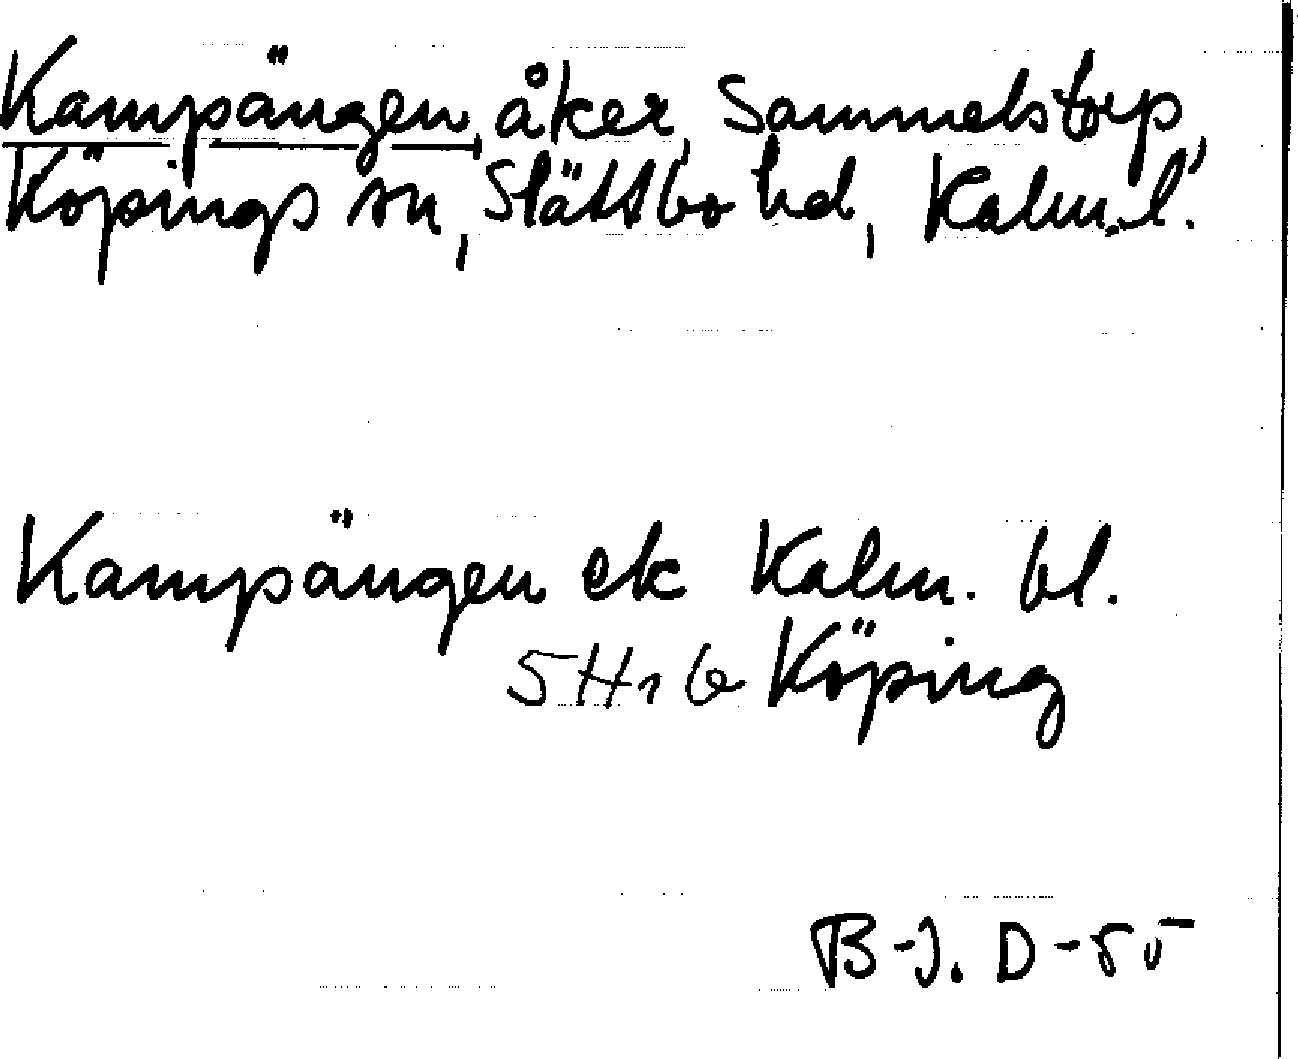 Kampängen, åker, Sammelstorp,
Köpings sn, Slättbo hd, Kalm. l.
Kampängen ek Kalm. bl.
5 H 1 b Köping
B-J. D -55